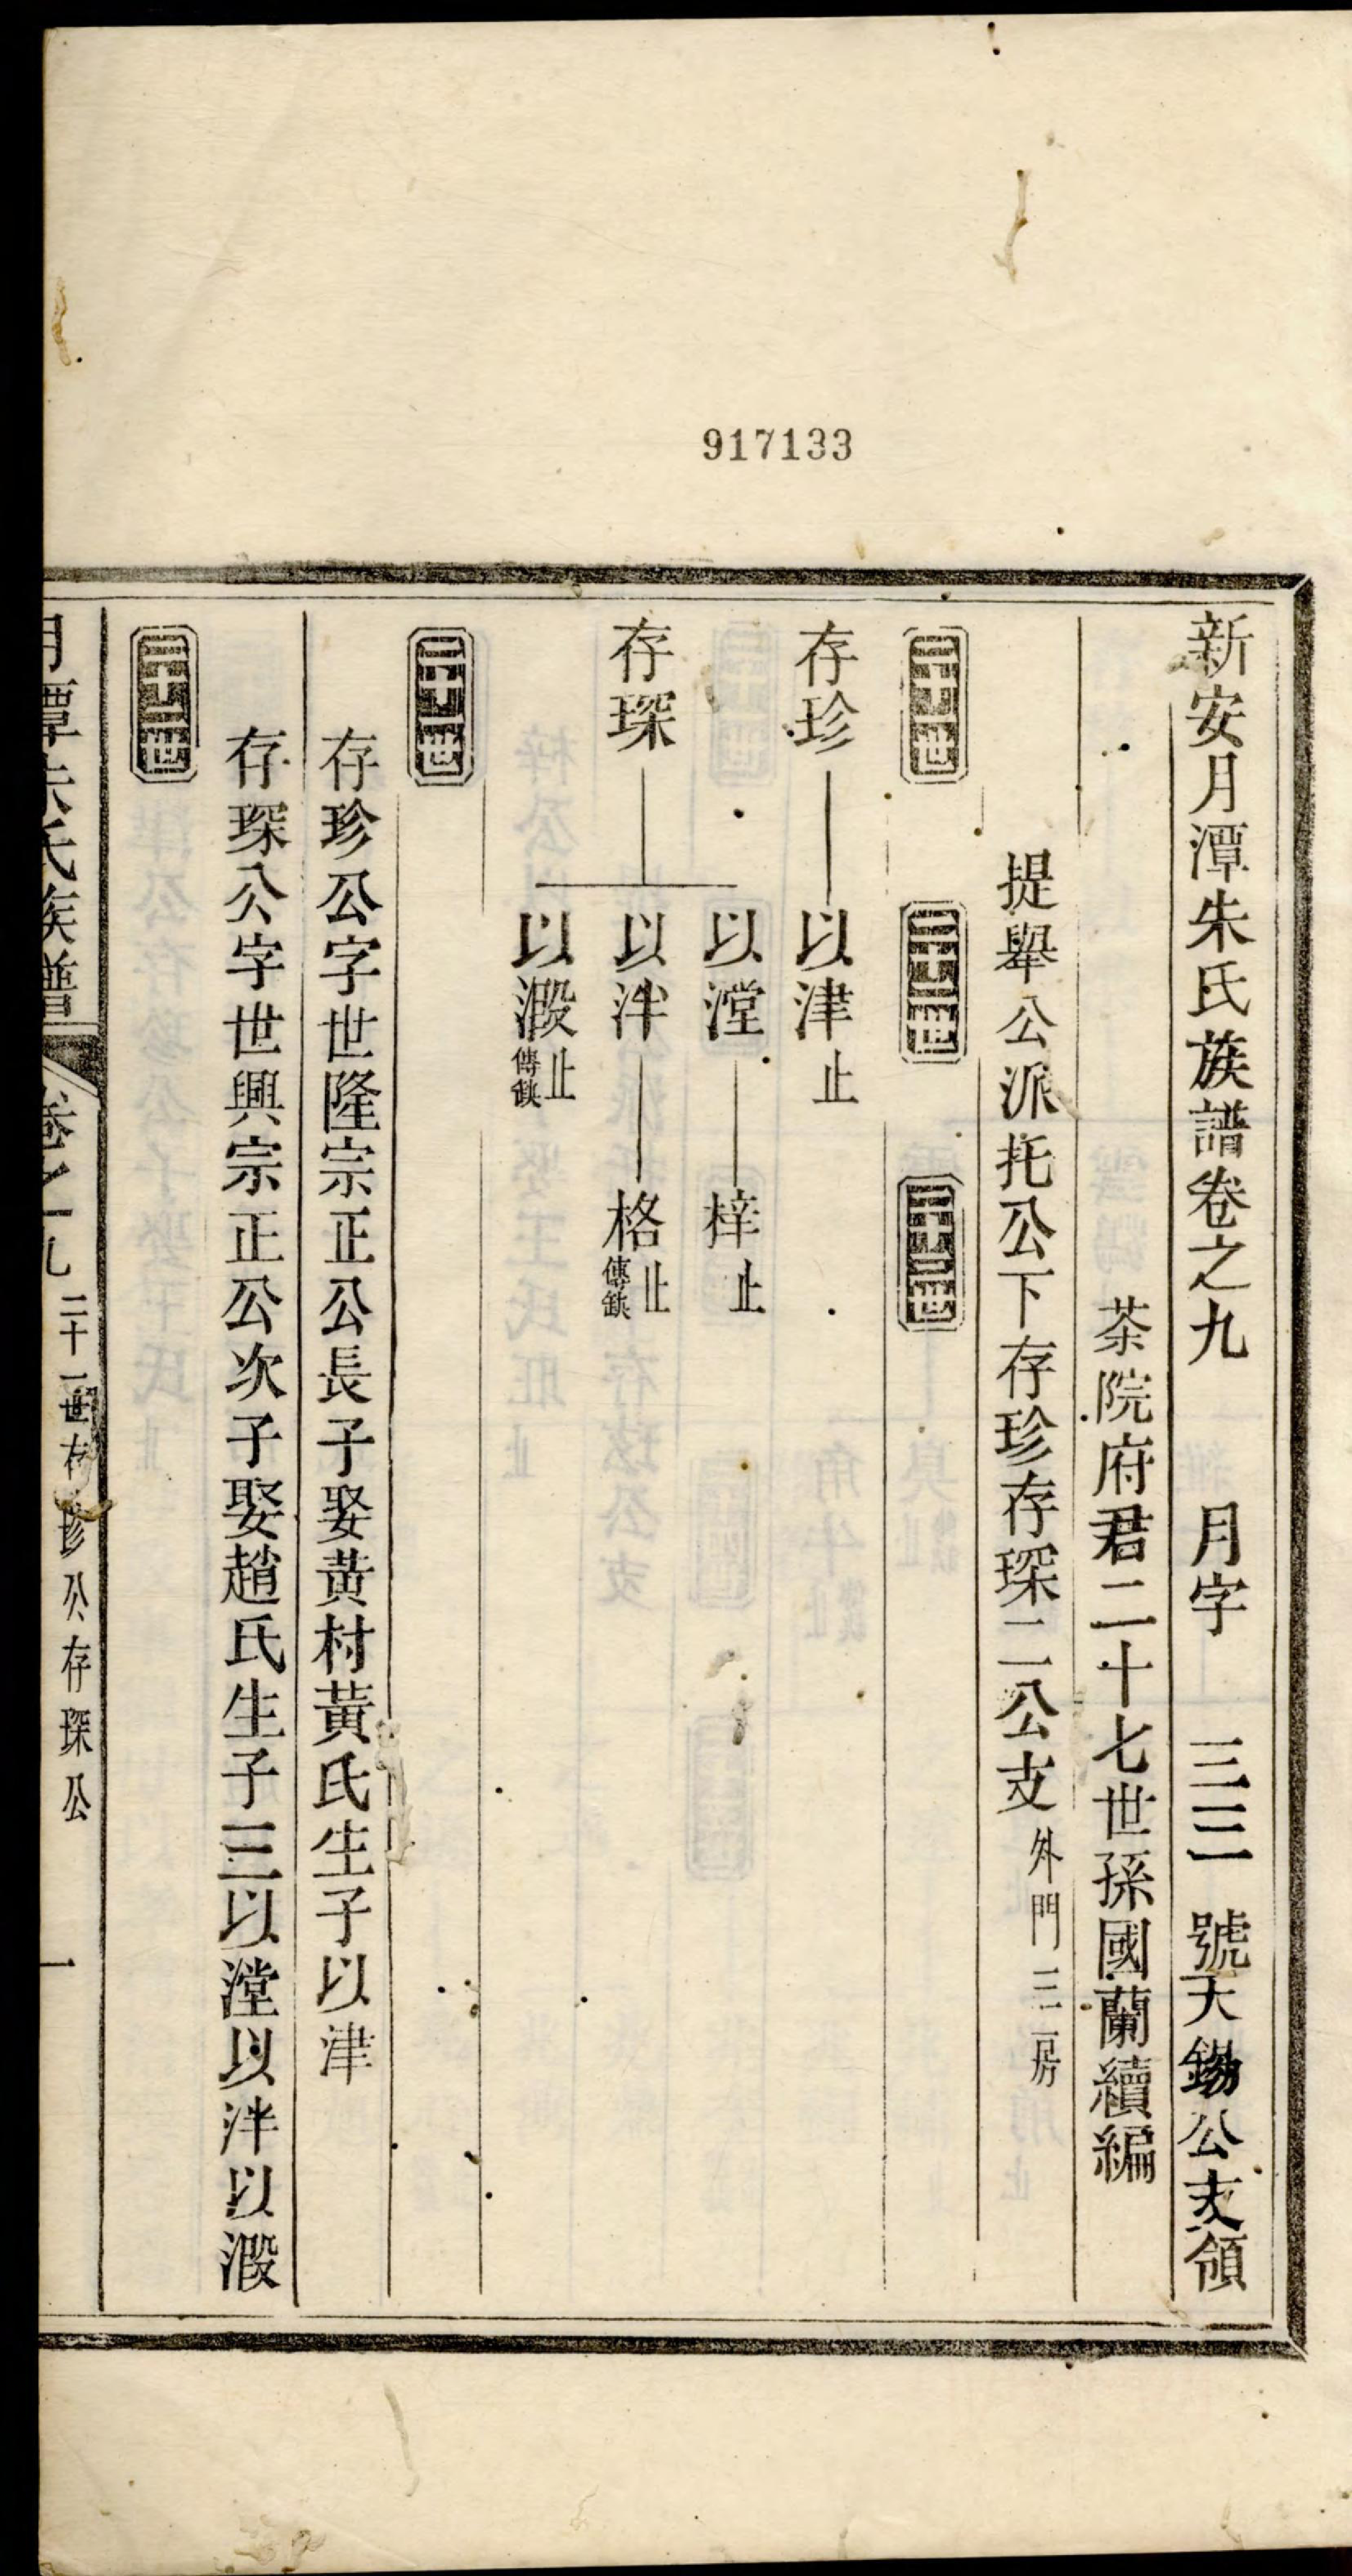 917133
新安月潭朱氏族譜卷之九　月字　三三號天錫公支領
茶院府君二十七世孫國蘭續編
提舉公派托公下存珍存琛二公支外門三房
二十一世　二十二世　二十三世
存珍　以津止
以漟　梓止
存琛　以泮　格止傳缺
以澱止傳缺
二十一世
存珍公字世隆宗正公長子娶黃村黃氏生子以津
存琛公字世興宗正公次子娶趙氏生子三以漟以泮以澱
二十二世
月潭朱氏族譜　卷之九　二十一世存珍公存琛公　一